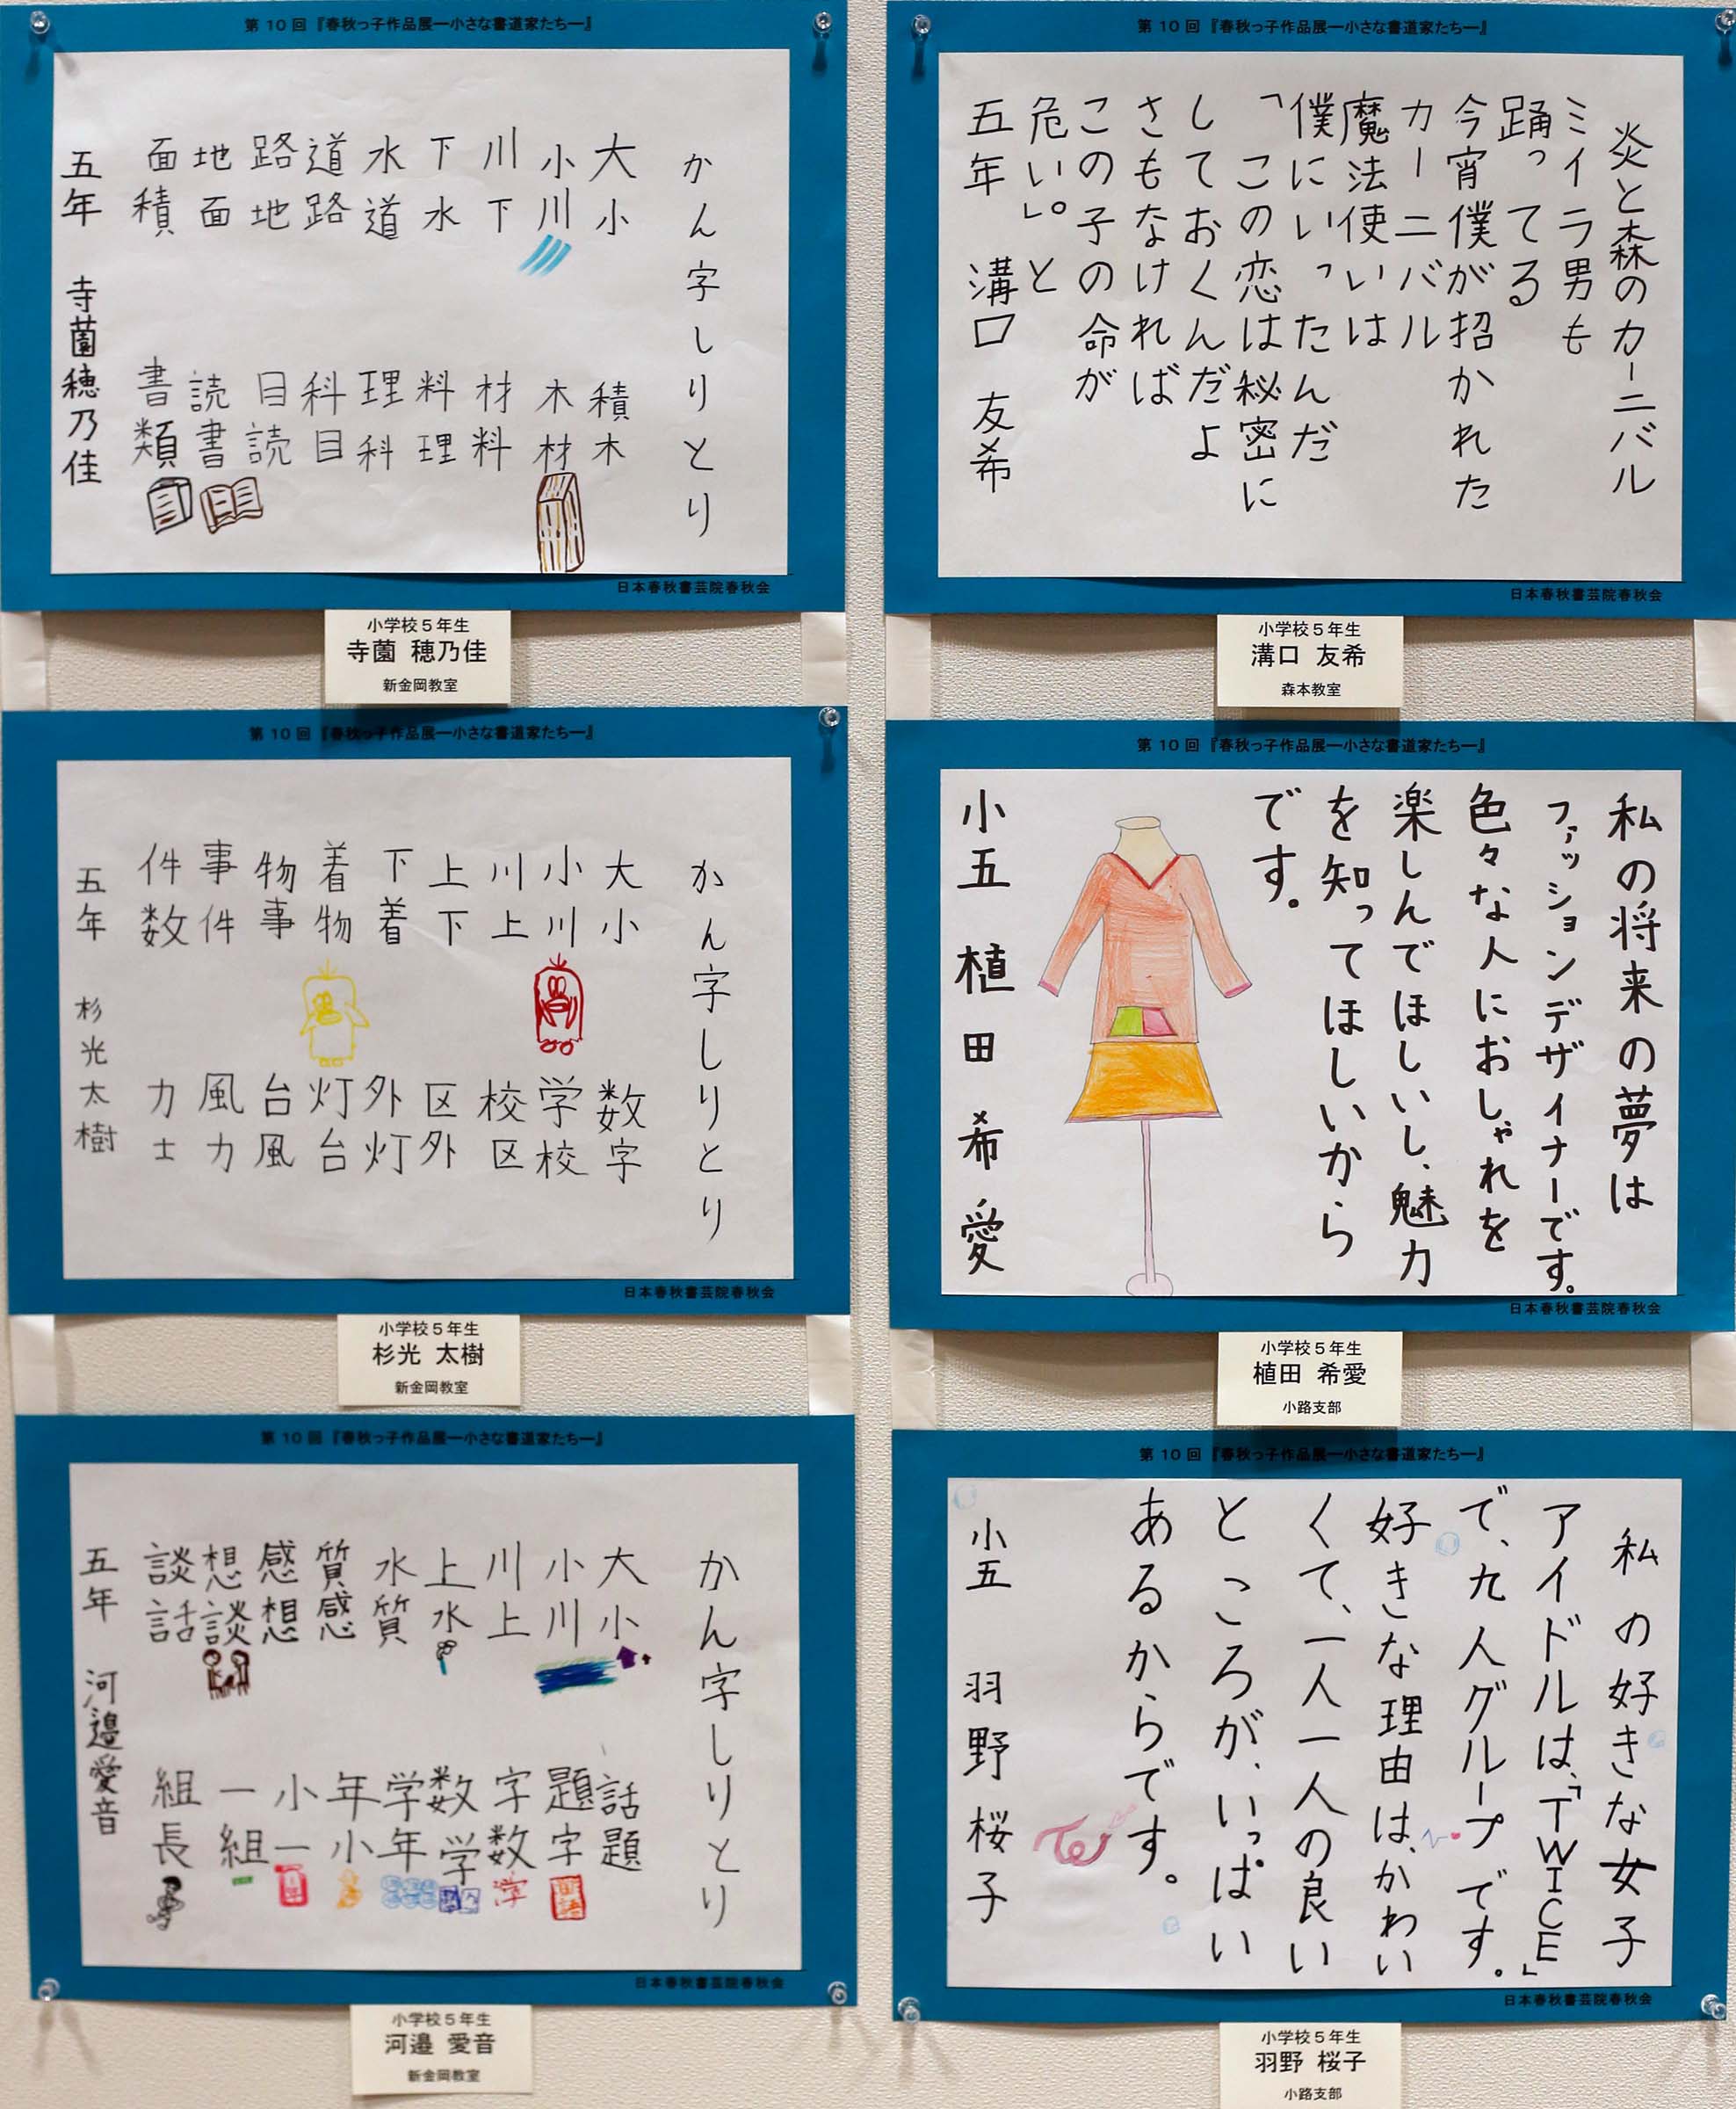 第10回『春秋っ子作品展―小さな書道家たち―』
かん字しりとり
大小
小川
川下
下水
水道
道路
路地
地面
面積
積木
木材
材料
料理
理科
科目
目読
読書
書類
五年 寺薗穂乃佳
日本春秋書芸院春秋会
小学校5年生
寺薗 穂乃佳
新金岡教室
第10回『春秋っ子作品展―小さな書道家たち―』
炎と森のカーニバル
ミイラ男も
踊ってる
今宵僕が招かれた
カーニバル
魔法使いは
僕にいったんだ
「この恋は秘密に
しておくんだよ
さもなければ
この子の命が
危い。」と
五年 溝口 友希
日本春秋書芸院春秋会
小学校5年生
溝口 友希
森本教室
第10回『春秋っ子作品展―小さな書道家たち―』
かん字しりとり
大小
小川
川上
上下
下着
着物
物事
事件
件数
数字
学校
校区
区外
外灯
灯台
台風
風力
力士
五年 杉光太樹
日本春秋書芸院春秋会
小学校5年生
杉光 太樹
新金岡教室
第10回『春秋っ子作品展―小さな書道家たち―』
私の将来の夢は
ファッションデザイナーです。
色々な人におしゃれを
楽しんでほしいし、魅力
を知ってほしいから
です。
小五 植田希愛
日本春秋書芸院春秋会
小学校5年生
植田 希愛
小路支部
第10回『春秋っ子作品展―小さな書道家たち―』
かん字しりとり
大小
小川
川上
上水
水質
質感
感想
想談
談話
話題
題字
字数
数学
学年
年小
小一
一組
組長
国語
五年 河邉愛音
日本春秋書芸院春秋会
小学校5年生
河邉 愛音
新金岡教室
第10回『春秋っ子作品展―小さな書道家たち―』
私の好きな女子
アイドルは、「TWICE」
で、九人グループです。
好きな理由は、かわい
くて、一人一人の良い
ところが、いっぱい
あるからです。
小五 羽野桜子
日本春秋書芸院春秋会
小学校5年生
羽野 桜子
小路支部